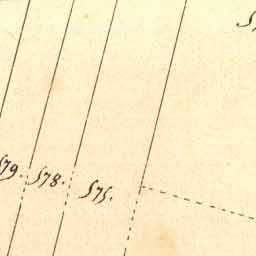 579.
578.
575.